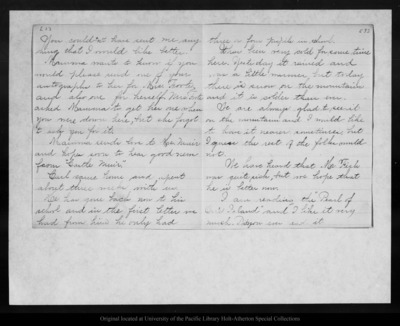 You couldn't have sent me any
thing that I would like better.
Mamma wants to know if you
would please send me of your
autographs to her for Miss
and also one for herself. She
asked Mamma to get her one when
you were down here, but she forgot
to ask you for it.
Mamma sends love to Mrs Muir
and hopes soon to hear good news
from "Little Muir."
Carl came home and spent
about three weeks with us.
He has gone back now to his
school and in the first letter we
had from him he only had
three or four pupils in school.
It has been very cold for some time
here. Yesterday it rained and
was a little warmer, but today
there is snow on the mountain
and it is colder than ever.
We are always glad to see it
on the mountain and I would like
to have it nearer sometimes, but
I guess the rest of the folks would
not.
We have heard that Mr.
was quite sick, but we hope that
he is better now.
I am reading the "Pearl of
Orr's Island" and I like it very
much. Did you ever see it
Original located at University of the Pacific Library Holt-Atherton Special Collections